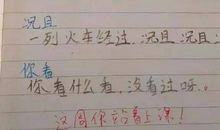 况且
一列火车经过,况且况且况
你看
你看什么看,没看过呀。
这周你站着上课!